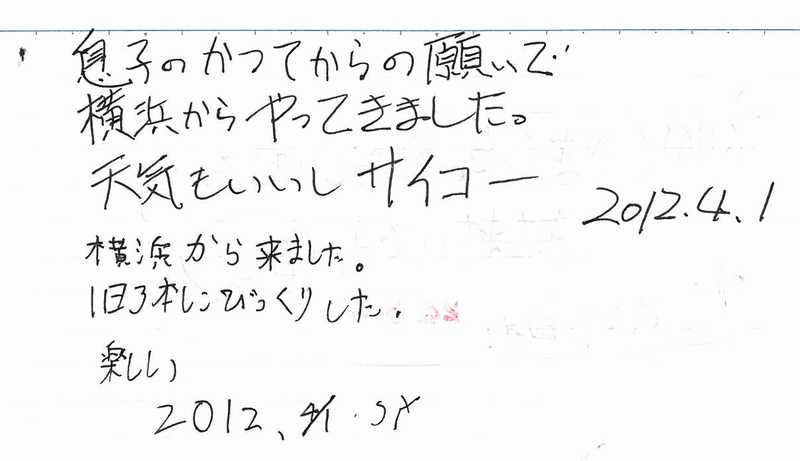 息子のかつてからの願いで
横浜からやってきました。
天気もいいし サイコー
2012.4.1
横浜から来ました。
1日3本にびっくりした.
楽しい
2012、4/1.